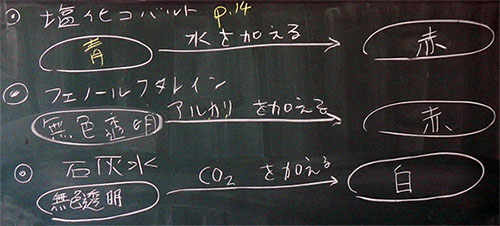 ◎ 塩化コバルト p.14
青 水を加える 赤
◎ フェノールフタレイン
無色透明 アルカリを加える 赤
◎ 石灰水
無色透明 CO₂を加える 白